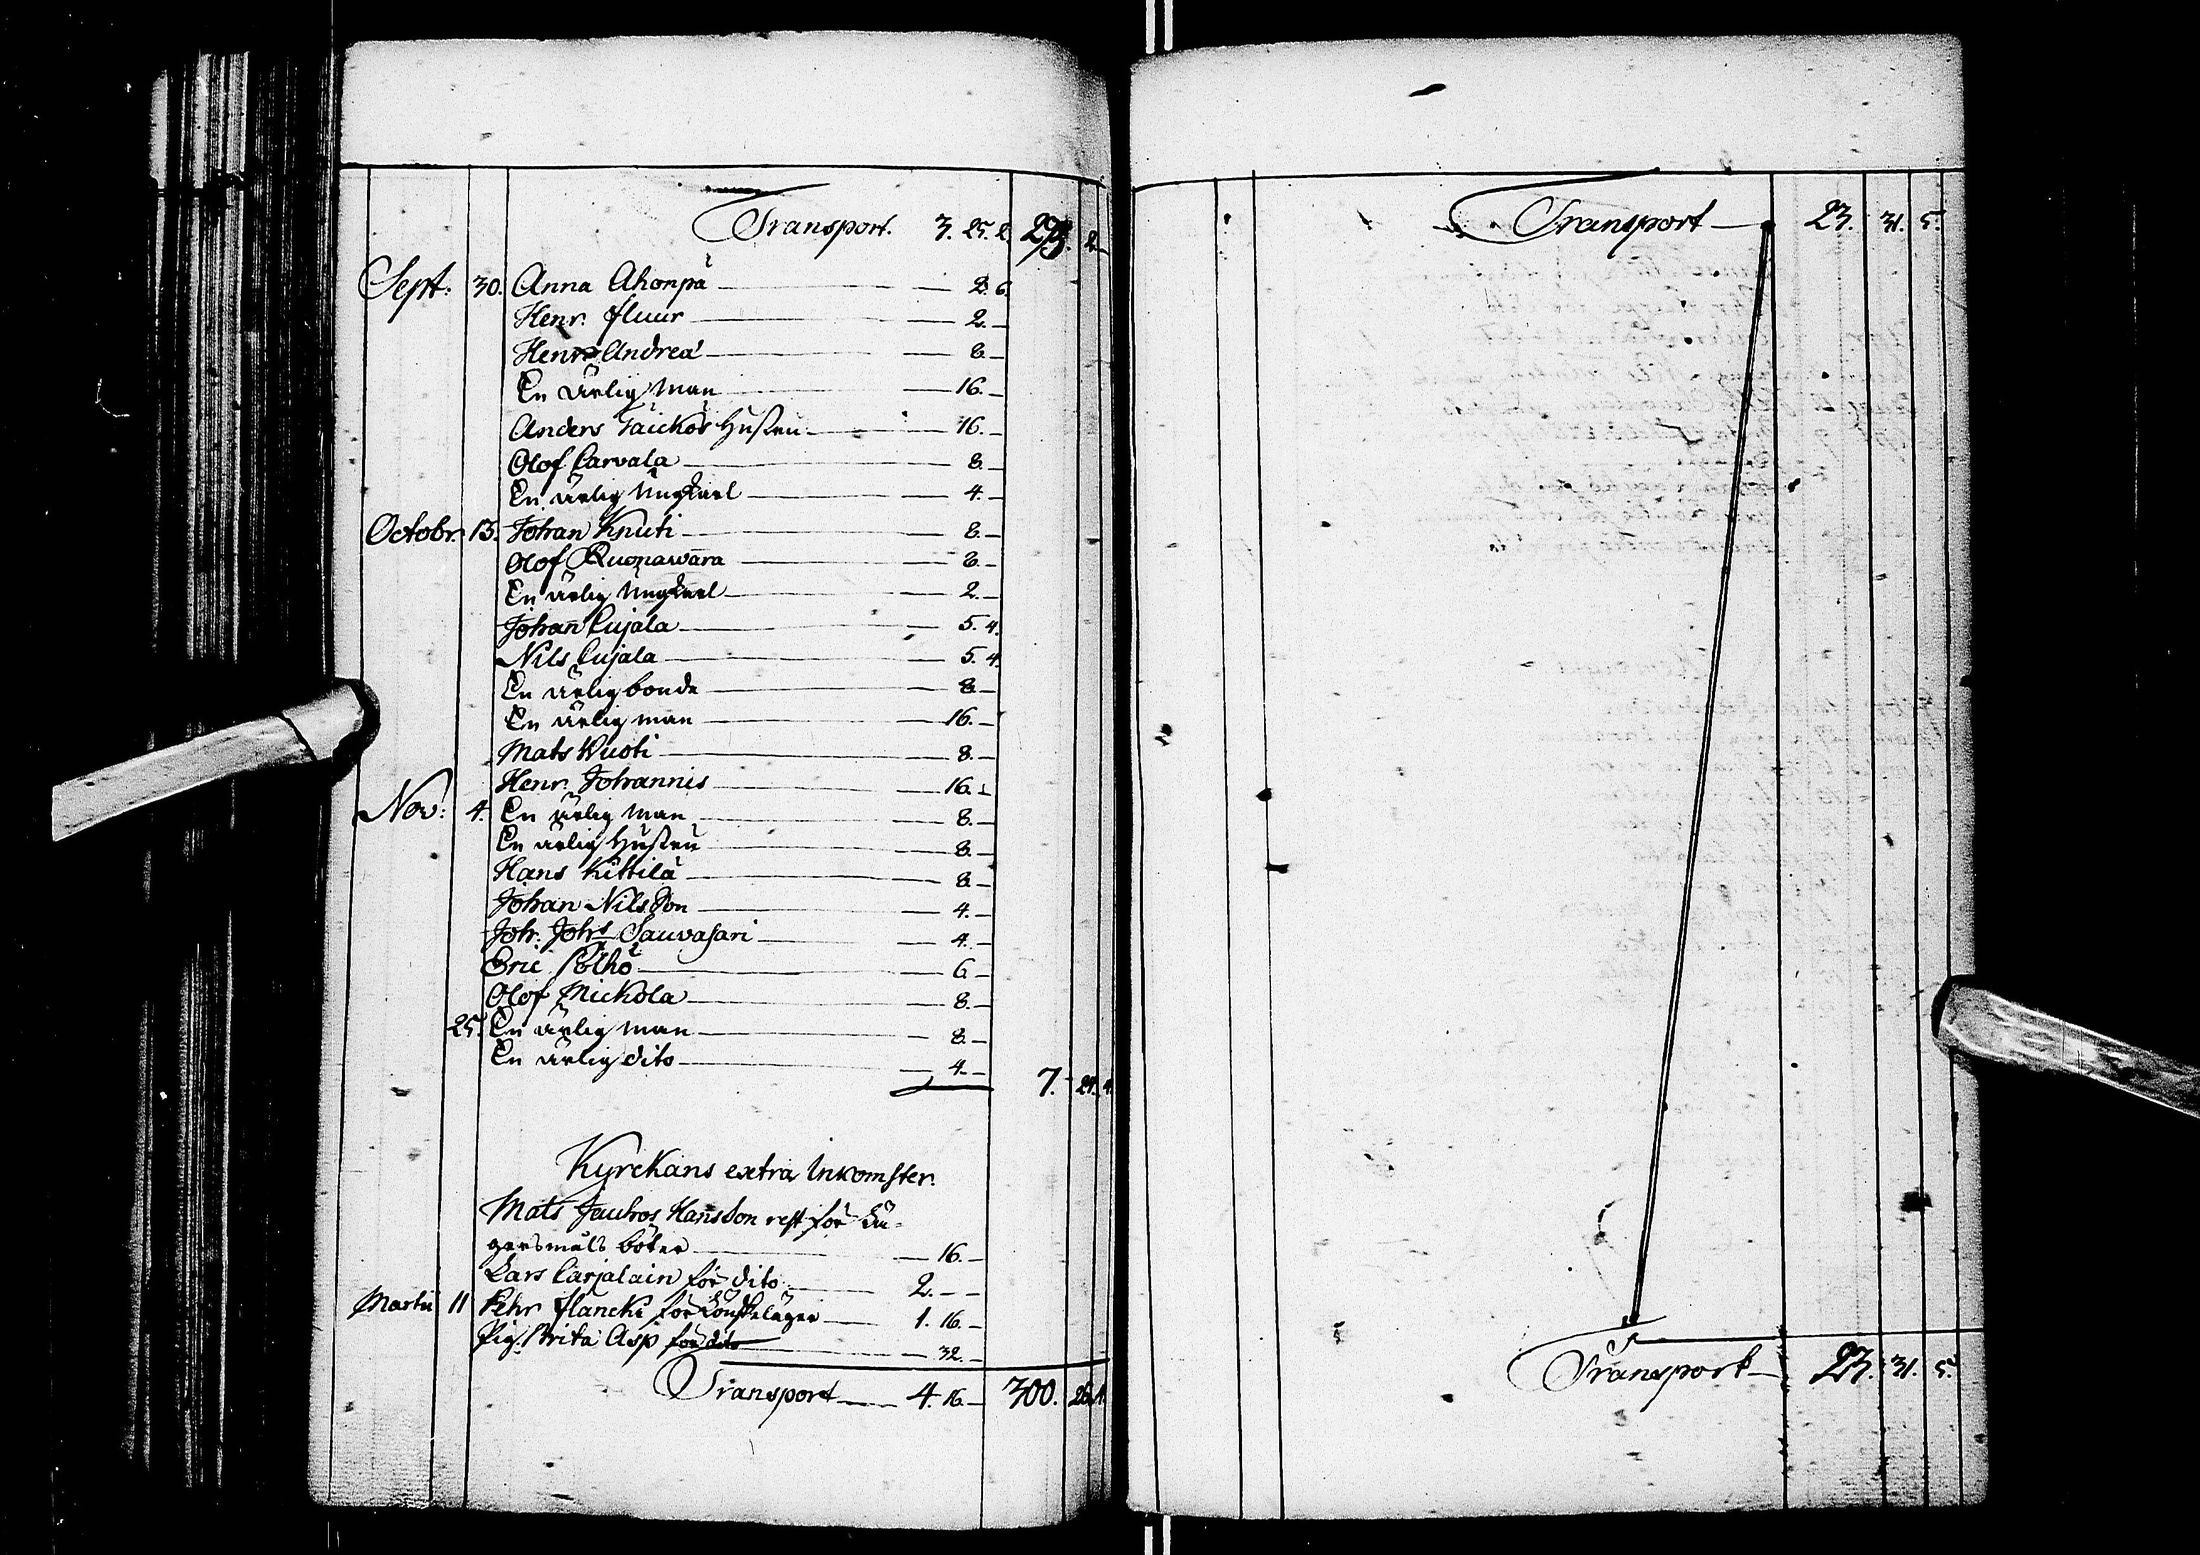 Transport. 3. 25. 2. 293. 2.
Sept: 30. Anna Ahonpä — 2. 6.
Henr. fluur — 2. —
Henr. Andreæ — 8 —
En ärlig Man — 16. —
Anders Taickos Hustru — 16. —
Olof Carvala — 8. —
En ärlig Ungkarl — 4. —
Octobr. 13. Johan Knuti — 8. —
Olof Ruonawara — 8. —
En ärlig Ungkarl — 2. —
Johan Cujala — 5. 4.
Nils Cujala — 5. 4.
En ärlig bonde — 8 —
En ärlig man — 16. —
Mats Kuoti — 8. —
Henr. Johannis — 16. —
Nov: 4. En ärlig Man — 8. —
En ärlig Hustru — 8. —
Hans Kittilä — 8 —
Johan Nils Son — 4. —
Joh: Johs Sauvasari — 4. —
Eric Pölhö — 6 —
Olof Mickola — 8. —
25. En ärlig Man — 8. —
En ärlig dito — 4. —
7. 24. 4.
Kyrckans extra Inkomster.
Mats Jauhos Hansson rest för Lä-
gersmåls böter — 16. —
Lars Carjalain för dito — 2. — —
Martii 11 Pehr flancki för Lönskeläger — 1. 16. —
Pig. Brita Asp för dito — 32. —
Transport — 4. 16. — 300. 26. 4.
Transport — 23. 31. 5.
Transport — 23. 31. 5.